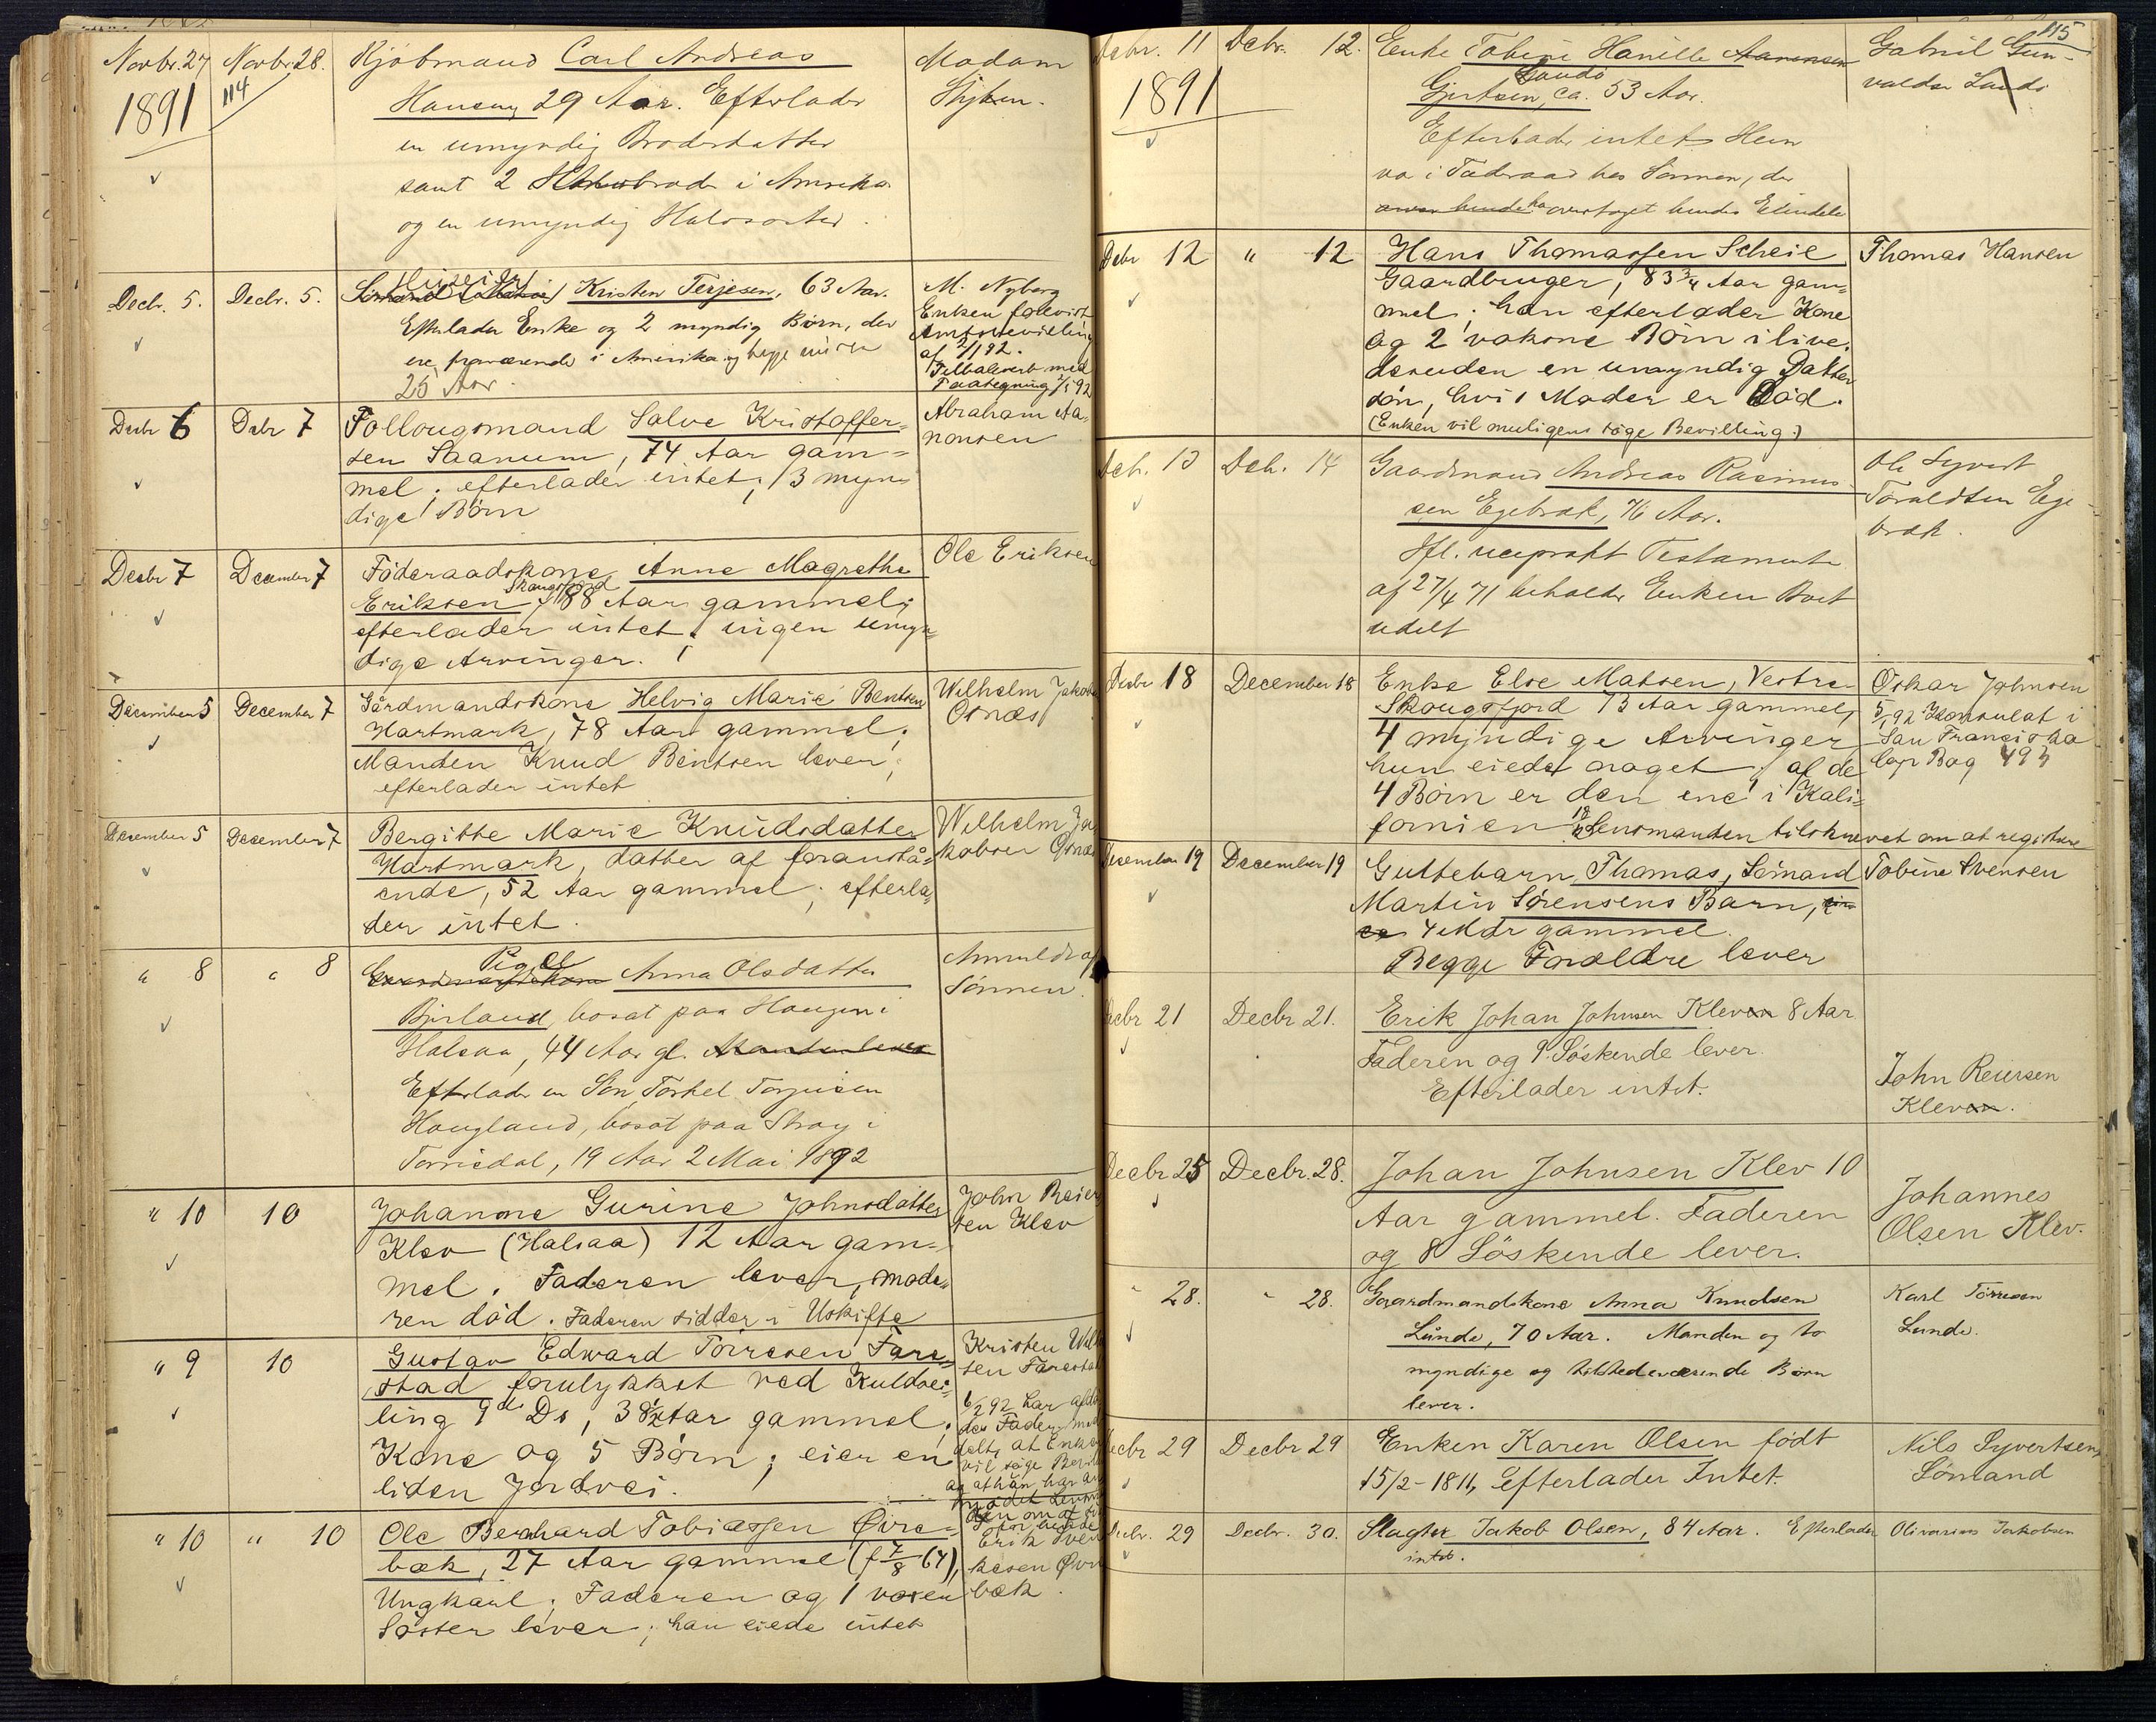 114
Novbr. 27
1891
Novbr. 28.
Kjöbmand Carl Andreas
Hansen, 29 Aar. Efterlader
en umyndig Broderdatter
samt 2 Halvbrødre i Amerika
og en umyndig Halvsøster.
Madam
Decbr. 5.
Decbr. 5.
Kristen Terjesen, 63 Aar.
Efterlader Enke og 2 myndig Børn, der
ere fraværende i Amerika og begge
25 Aar.
M. Nyberg
Enken forevist
Amtsbevilling
af 2/1 92.
Tilbalevert med
Paategning 2/1 92
Decbr 6
Decbr 7
Follougsmand Salve Kristoffer-
sen Saanum, 74 Aar gam=
mel; efterlader intet; 3 myn
dige Børn
Abraham Aa-
nonsen
Decbr 7
December 7
Föderaadskone Anne Magrethe
Skaugsfjord
Eriksen, 88 Aar gammel;
efterlader intet; ingen umyn=
dige Arvinger.
Ole Eriksen
December 5
December 7
Gårdmandskone Helvig Marie Bentsen
Hartmark, 78 Aar gammel;
Manden Knud Bentsen lever;
efterlader intet
Wilhelm Jakobs
Osnes
December 5
December 7
Bergitte Marie Knudsdatter
Hartmark, datter af foranstå=
ende, 52 Aar gammel; efterla=
der intet.
Wilhelm Ja
kobsen Osnes
" 8
" 8
Pige
Gaardmandskone Anna Olsdatter
Bjerland, bosat paa Haugen i
Halsaa, 44 Aar gl. Manden lever
Efterlader en Søn, Torkel Torjusen
Hougland, bosat paa Stray i
Torrisdal, 19 Aar 2 Mai 1892
Anmeldt af
Sønnen.
" 10
10
Johanne Gurine Johnsdatter
Klev (Halsaa) 12 Aar gam=
mel. Faderen lever, mode=
ren död. Faderen sidder i Uskifte
John Reier
sen Klev
" 9
10
Gustav Edward Törresen Fare=
stad forulykket ved Kuldsei=
ling 9de Ds, 38½ Aar gammel;
Kone og 5 Børn; eier en
liden Jordvei.
Kristen
sen Farestad
6/2 92 har afdö
des Fader med
delt, at Enken
vil söge Bevil
" 10
" 10
Ole Bernhard Tobiassen Øvre=
bæk, 27 Aar gammel (f 7/8 64),
Ungkarl; Faderen og 1 voxen
Söster lever; han eiede intet
Erik
kesen Øvre
bæk.
115
Decbr. 11
1891
Decbr. 12.
Enke Tobine Hanille Aanensen
Landö
Gjertsen, ca. 53 Aar.
Efterlader intet. Hun
va i Föderaad hos Sønnen, der
har overtaget hendes Eiendele
Gabriel Gun-
valdsen Landö
Decbr 12
" 12
Hans Thomassen Scheie
Gaardbruger, 83 3/4 Aar gam=
mel; han efterlader Kone
og 2 voksne Børn i live,
desuden en umyndig Datter
søn, hvis Moder er död.
(Enken vil muligens söge Bevilling.)
Thomas Hansen
Dcb. 13
Dcb. 14
Gaardmand Andreas Rasmus-
sen Egebræk, 76 Aar.
Ifl. reciprokt Testamente
af 27/4 71 beholder Enken Boet
udelt
Ole Syvert
Toraldsen Ege-
bræk.
Decbr 18
December 18
Enke Else Matsen, Vestre-
Skougsfjord 73 Aar gammel,
4 myndige Arvinger
hun eiede noget; af de
4 Børn er den ene i Kali=
fornien Lensmanden tilskrevet om at registrere
Oskar Johnsen
5/1 92 Konsulat i
San Francisko
Decembr 19
December 19
Guttebarn Thomas, Sömand
Martin Sørensens Barn,
4 Mdr gammel.
Begge Forældre lever
Tobine Svensen
Decbr 21
Decbr 21.
Erik Johan Johnsen Kleven 8 Aar
Faderen og 9 Söskende lever.
Efterlader intet.
John Reiersen
Kleven.
Decbr 25
Decbr. 28.
Johan Johnsen Klev 10
Aar gammel. Faderen
og 8 Söskende lever.
Johannes
Olsen Klev.
" 28.
" 28.
Gaardmandskone Anna Knudsen
Lunde, 70 Aar. Manden og to
myndige og tilstedeværende Børn
lever.
Karl Törresen
Lunde.
Decbr 29
Decbr 29
Enken Karen Olsen født
15/2-1811, Efterlader Intet.
Nils Syvertsen
Sömand
Decbr. 29
Decbr. 30.
Slagter Jakob Olsen, 84 Aar. Efterlader
intet.
Olivarius Jakobsen